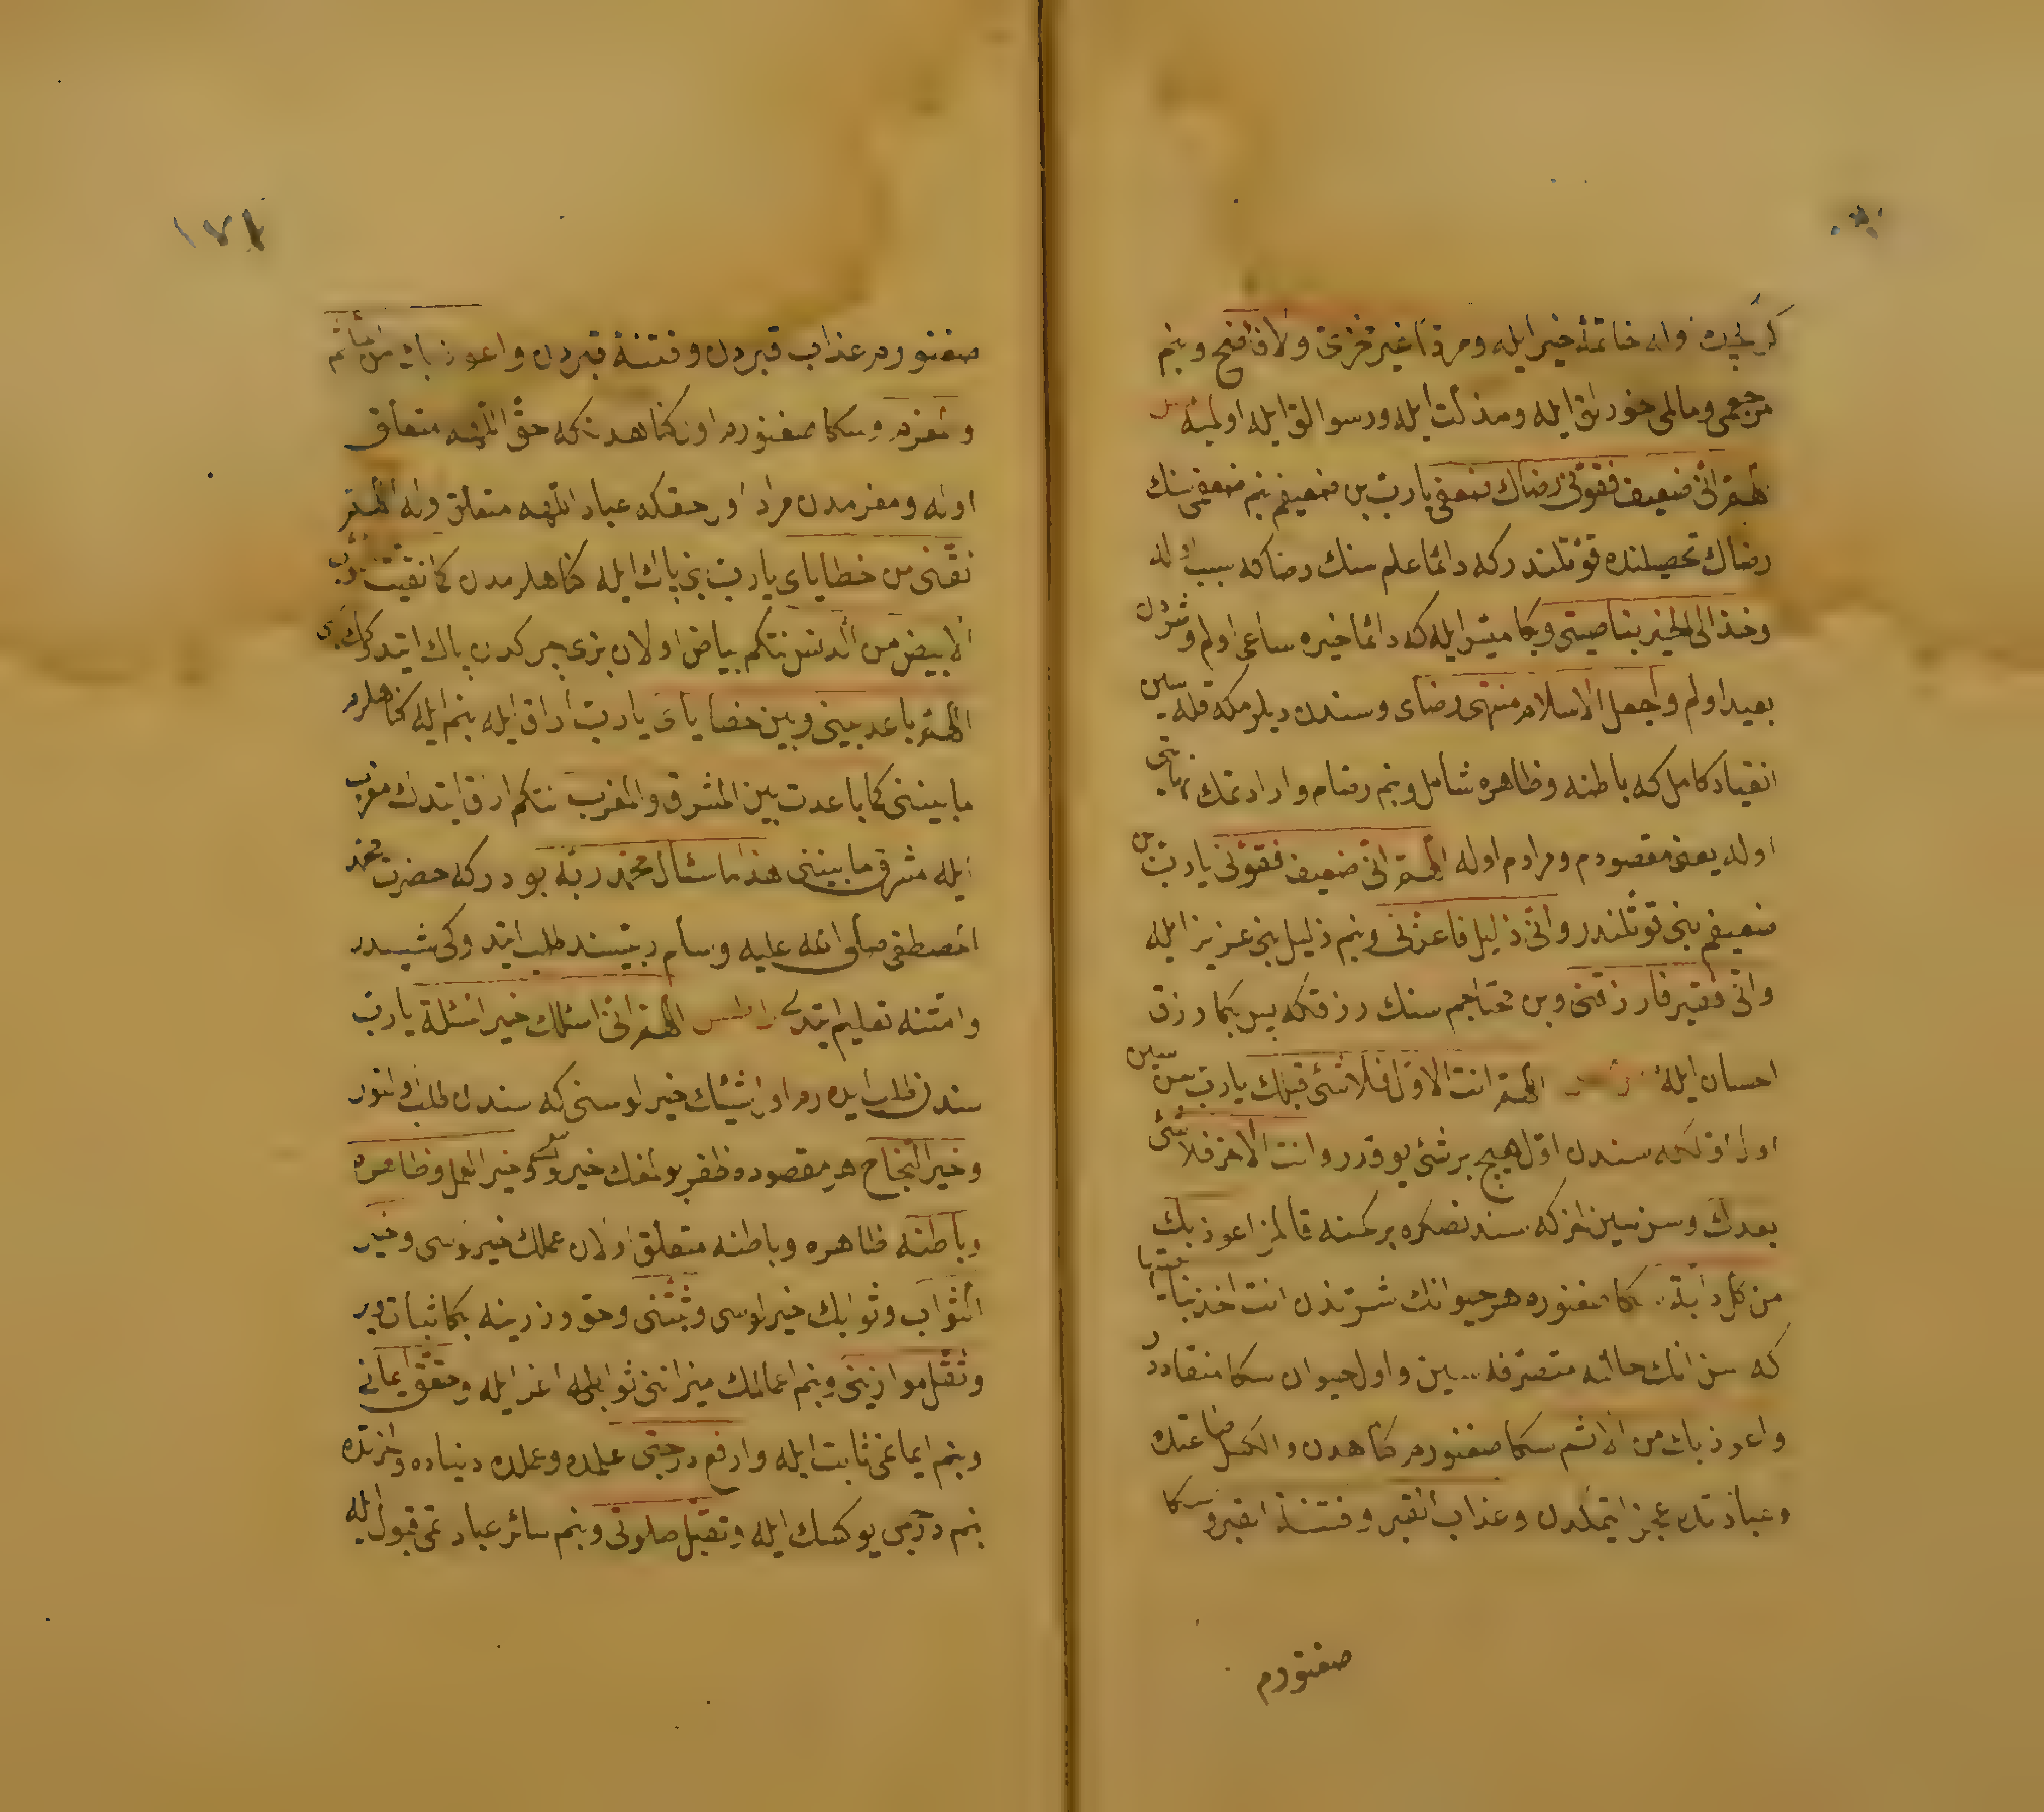 خاتمهٔ خير ايله ومردًا غير مخزى ولا فاضح وبنم
مرجعمى ومالمى خورلق ايله ومذلت ايله ورسوالق ايله اولميه
اللهم انى ضعيف فقونى رضاك ضعفى يارب بن ضعيفم بنم ضعفمى سنك
رضاك تحصيلنده قوتلندر كه دائما علم سنك رضاكه سبب اوله
وخذ الى الخير بناصيتى وبكا ميسر ايله كه دائما خيره ساعى اولم وشردن
بعيد اولم واجعل الاسلام منتهى رضاى وسندن ديلرمكه قله سين
انقياد كامل كه باطنه وظاهره شامل وبنم رضام وارادتمك نهايتى
اوله يعنى مقصودم ومرادم اوله اللهم انى ضعيف فقونى يارب بن
ضعيفم بنى قوتلندر وانى ذليل فاعزنى وبنم ذليل بنى عزيز ايله
وانى فقير فارزقنى وبن محتاجم سنك رزقكه پس بكا رزق
احسان ايله اللهم انت الاول فلا شئ قبلك يارب سن سين
اول اولكه سندن اول هيچ برشئ يوقدر وانت الاخر فلا شئ
بعدك وسن سين اخر كه سندنصكره بركمسنه قالمز اعوذ بك
من كل دابة سكا صغنورم هر حيوانك شرندن انت اخذ بناصيتها
كه سن انك حالنه متصرفه سين واول حيوان سكا منقاددر
واعوذ بك من الاثم سكا صغنورم كناهدن والكسل طاعتده
وعبادتده عجز ايتمكدن وعذاب القبر وفتنة القبر وسكا
صغنورم
١٧١
صغنورم عذاب قبردن وفتنهٔ قبردن واعوذ بك من المأثم
والمغرم وسكا صغنورم اول كناهدنكه حق اللهه متعلق
اوله ومغرمدن مراد اول حقكه عباد اللهه متعلق اوله اللهم
نقنى من خطاياى يارب بنى پاك ايله كناهلرمدن كما نقيت الثوب
الابيض من الدنس نتكم بياض اولان بزى چركدن پاك ايتدك كبى
اللهم باعد بينى وبين خطاياى يارب اراق ايله بنم ايله كناهلرم
مابيننى كما باعدت بين المشرق والمغرب نتكم اراق ايتدك مغرب
ايله مشرق مابيننى هذا ما سئال محمد ربه بودركه حضرت محمد
المصطفى صلى الله عليه وسلم ربيسندن طلب ايتدوكى شيدر
وامتنه تعليم ايتدى اللهم انى اسئلك خير المسئلة يارب
سندن طلب ايدرم اول شيئك خيرلوسنى كه سندن طلب اولنور
وخير النجاح هر مقصوده ظفر بولمغك خيرلوسنى وخير العمل وظاهره
وباطنه ظاهره وباطنه متعلق اولان عملك خيرلوسى وخير
الثواب وثوابك خيرلوسى وثبتنى وحق وزرينه بكا ثبات وير
وثقل موازينى وبنم اعمالمك ميزاننى ثوابله اغر ايله وحقق ايمانى
وبنم ايمانمى ثابت ايله وارفع درجتى علمده وعملده دنياده واخرتده
بنم درجه‌مى يوكسك ايله وتقبل صلوتى وبنم سائر عبادتمى قبول ايله